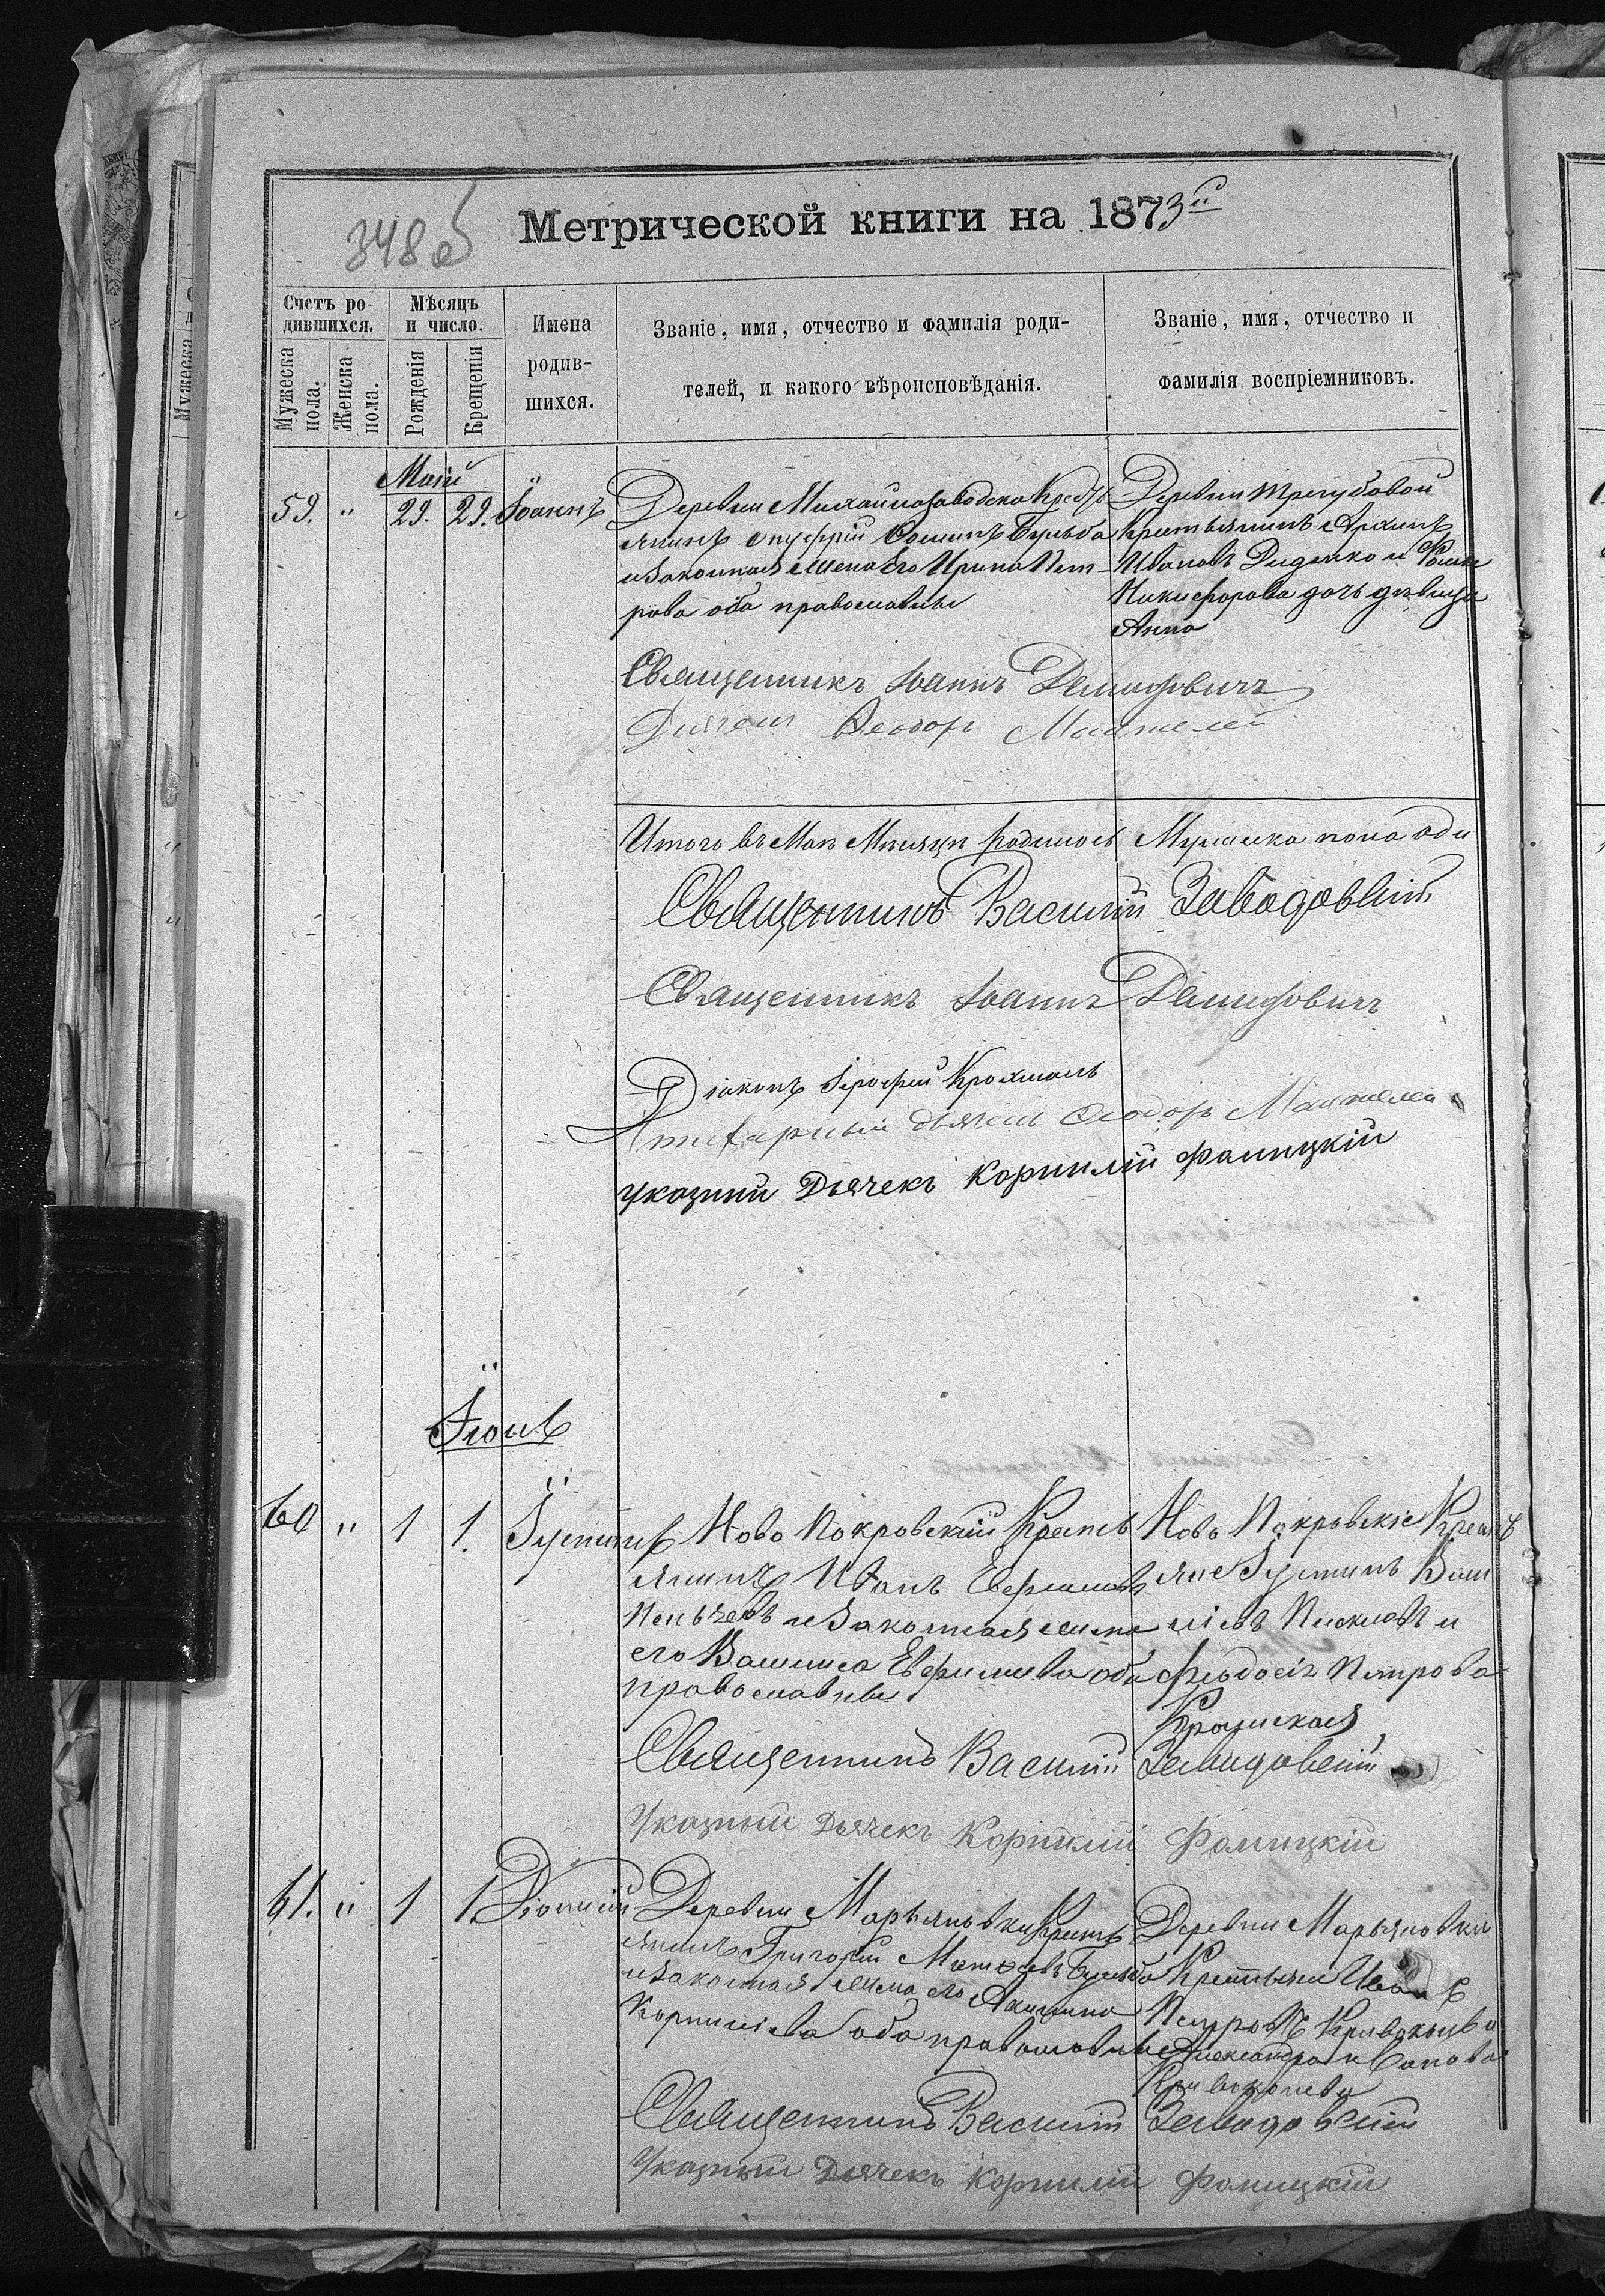 348 об
Метрической книги на 1873й
Счетъ ро-
дившихся.
Мужеска пола.
Женска пола.
Мѣсяцъ
и число.
Рожденія
Крещенія
Имена
родив-
шихся.
Званіе, имя, отчество и фамилія роди-
телей, и какого вѣроисповѣданія.
Званіе, имя, отчество и
фамилія воспріемниковъ.
Май
59. " 29. 29. Іоаннъ
Деревни
янинъ Онуфрій Бульба
и законная жена Его Ирина Пет-
рова оба православны
Деревни Трегубовой
Крестьянинъ Архипъ
Ивановъ Диденко и
Никифорова дочь дѣвица
Анна
Священникъ Іоаннъ Демидовичъ
Дьячекъ Ѳеодоръ
Итого въ Маѣ Мѣсяцѣ родилось Мужеска пола
Священникъ Василій Заводовскій
Священникъ Іоаннъ Демидовичъ
Діаконъ Крохмаль
дьячекъ Ѳеодоръ
Указный Дьячекъ Корнилій Фалицкій
Іюнь
60 " 1 1. Іустинъ
Ново Покровский Кресть
янинъ Иванъ Ефимовъ
и Законная жена
его Василиса Евфимиева оба
православны
Ново Покровскіе Кресть
яне Іустинъ Васи
ліевъ и
Феодосія Петрова
Священникъ Василій Заводовскій
Указный Дьячекъ Корнилій Фалицкій
61. " 1 1. Діонисій
Деревни Марьяновки Кресть
янинъ Григорій Бульба
и законная жена его Акилина
Корниліева оба православны
Деревни Марьяновки
Крестьяни Иванъ
Петровъ
Александра
Священникъ Василій Заводовскій
Указный Дьячекъ Корнилій Фалицкій